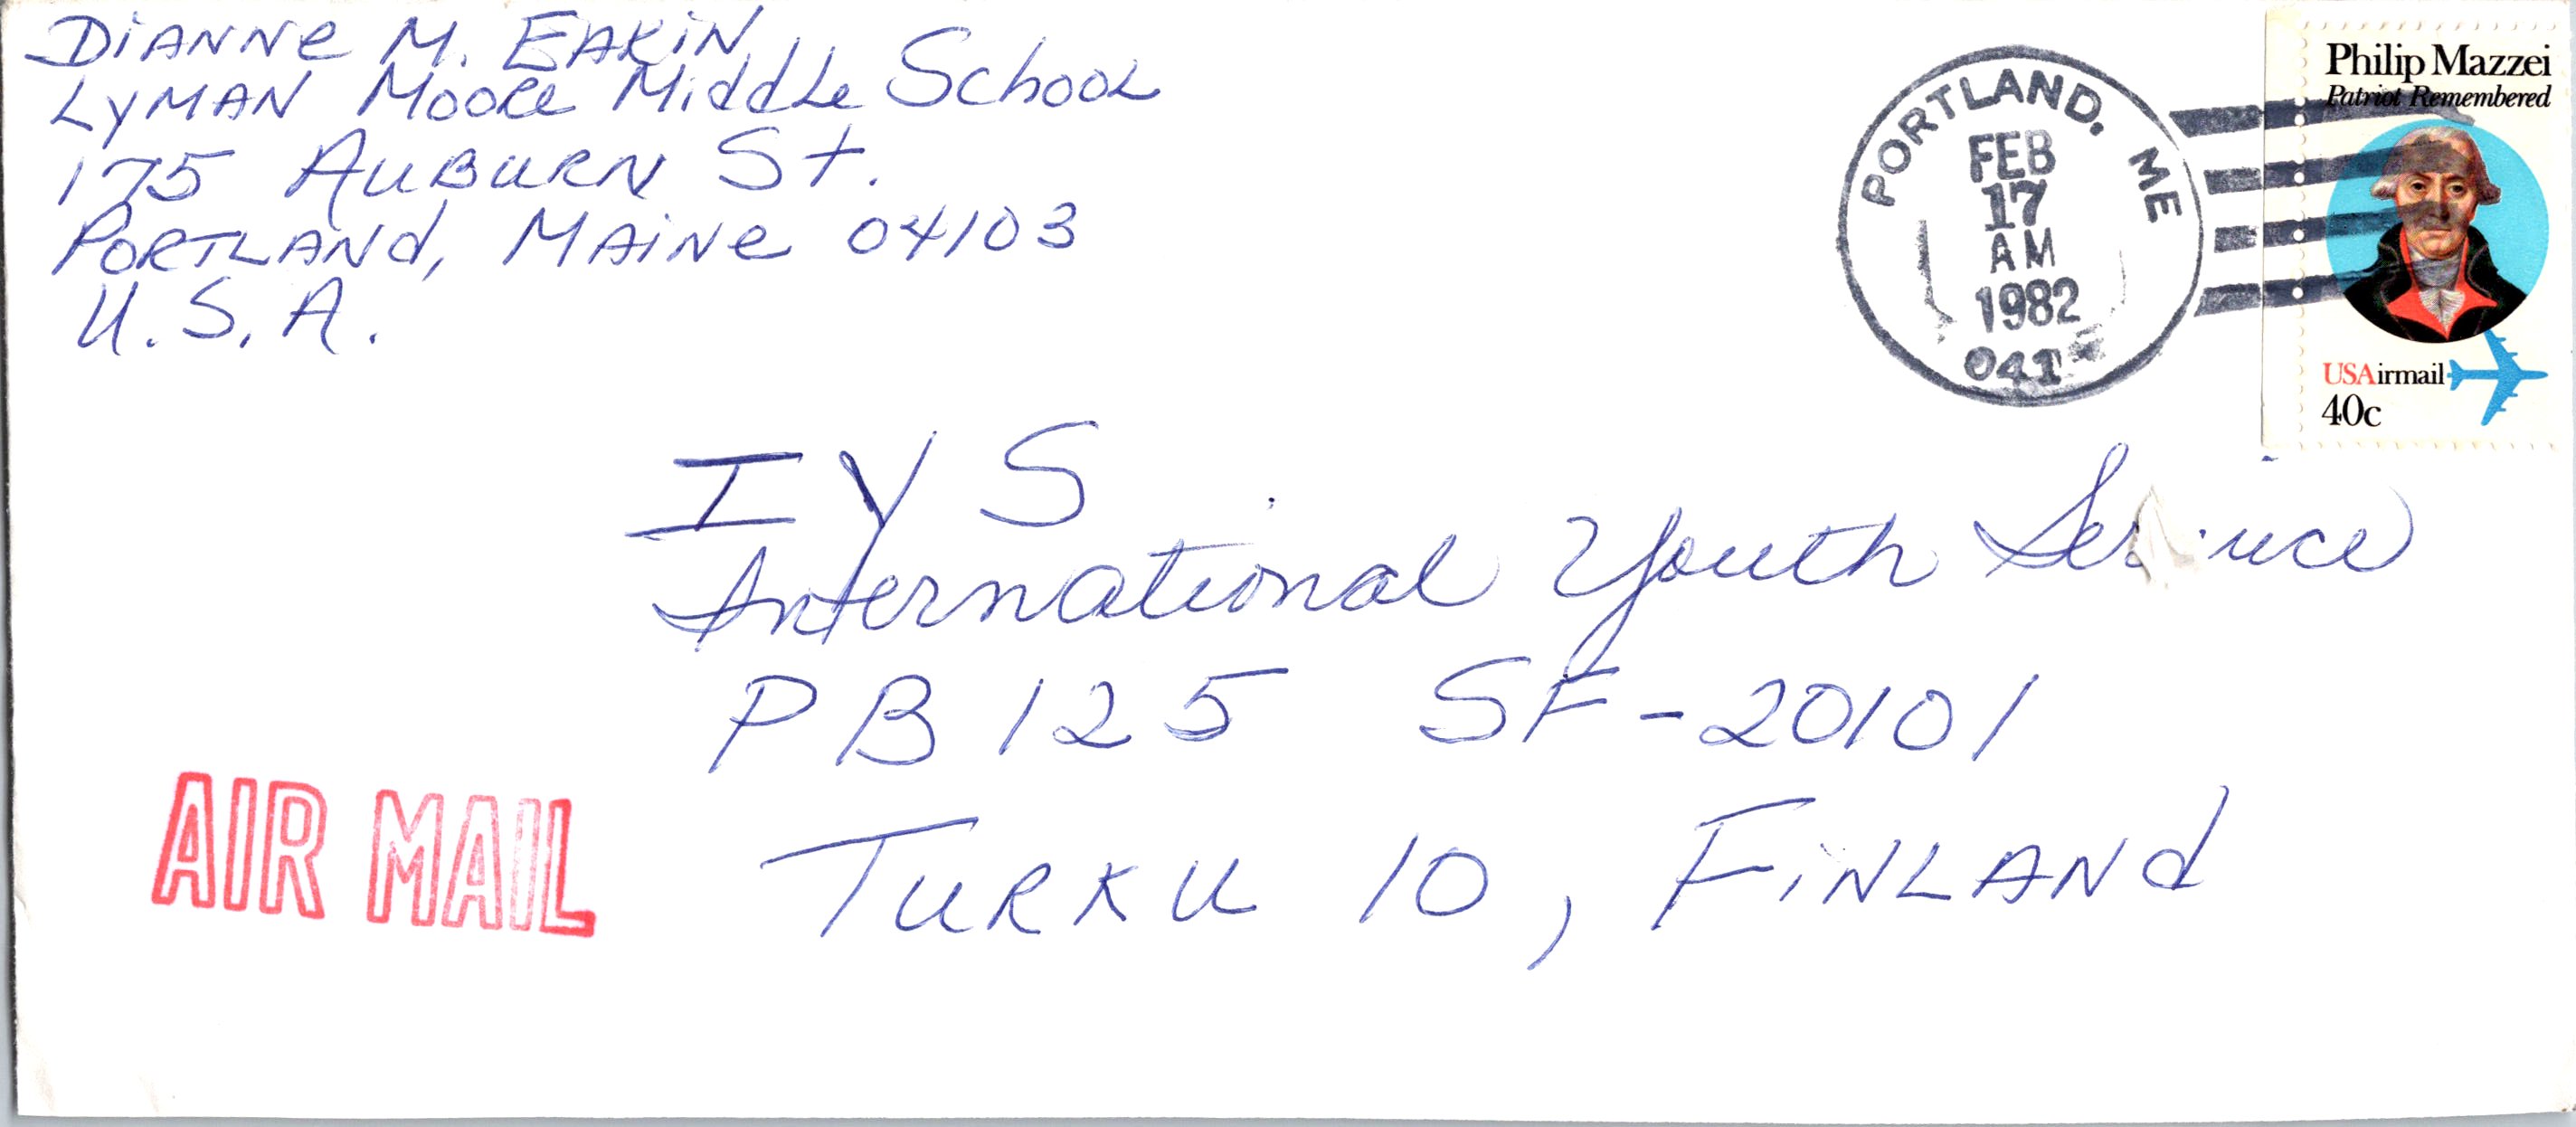 Dianne M. Eakin
Lyman Moore Middle School
175 Auburn St.
Portland, Maine 04103
U.S.A.
PORTLAND, ME
FEB
17
AM
1982
041
Philip Mazzei
Patriot Remembered
USAirmail
40c
I Y S
International Youth Service
PB 125 SF-20101
Turku 10, Finland
AIR MAIL